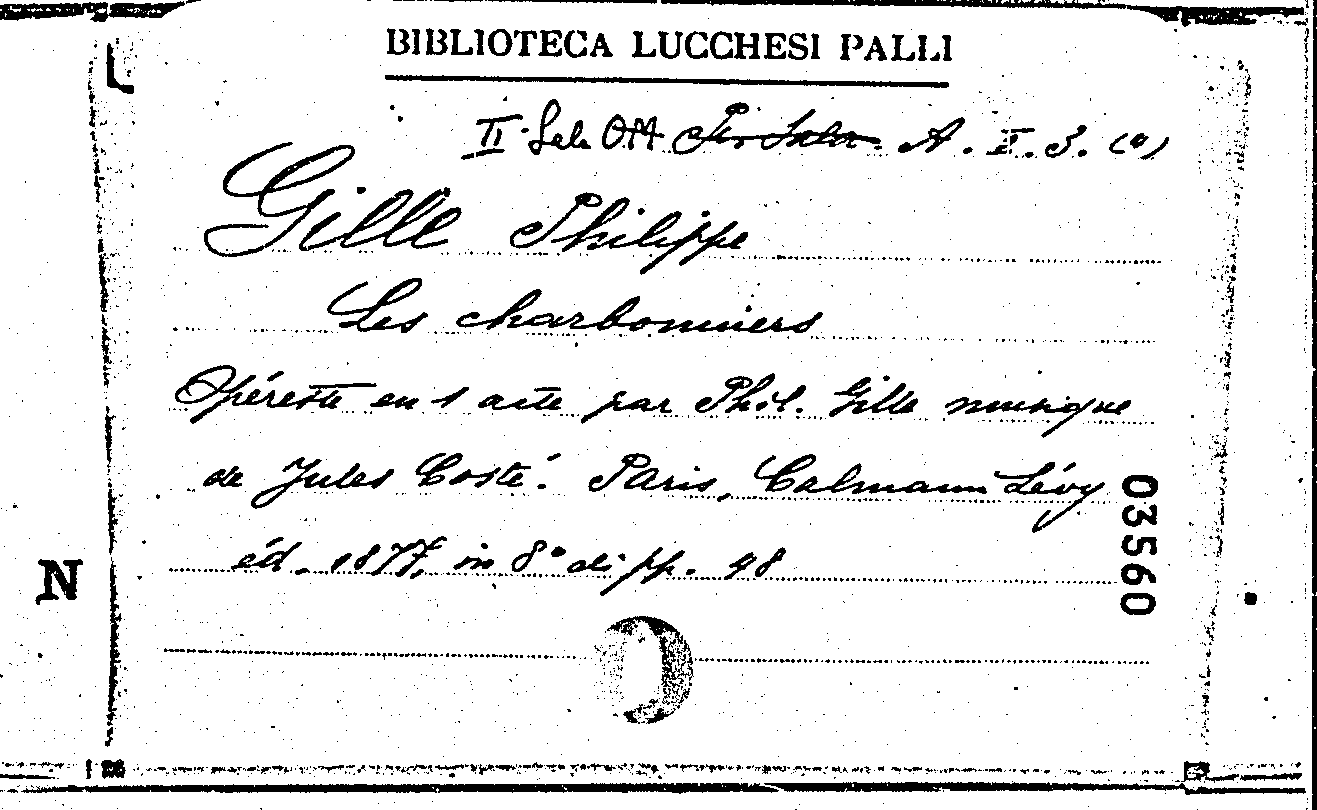 BIBLIOTECA LUCCHESI PALLI
II Sala A. II. 3. (9)
Gille Philippe
Les charbonniers
Opérette en 1 acte par Phil. Gille musique
de Jules Costé. Paris, Calmann Lévy
éd. 1877, in 8° di pp. 48
03560
N